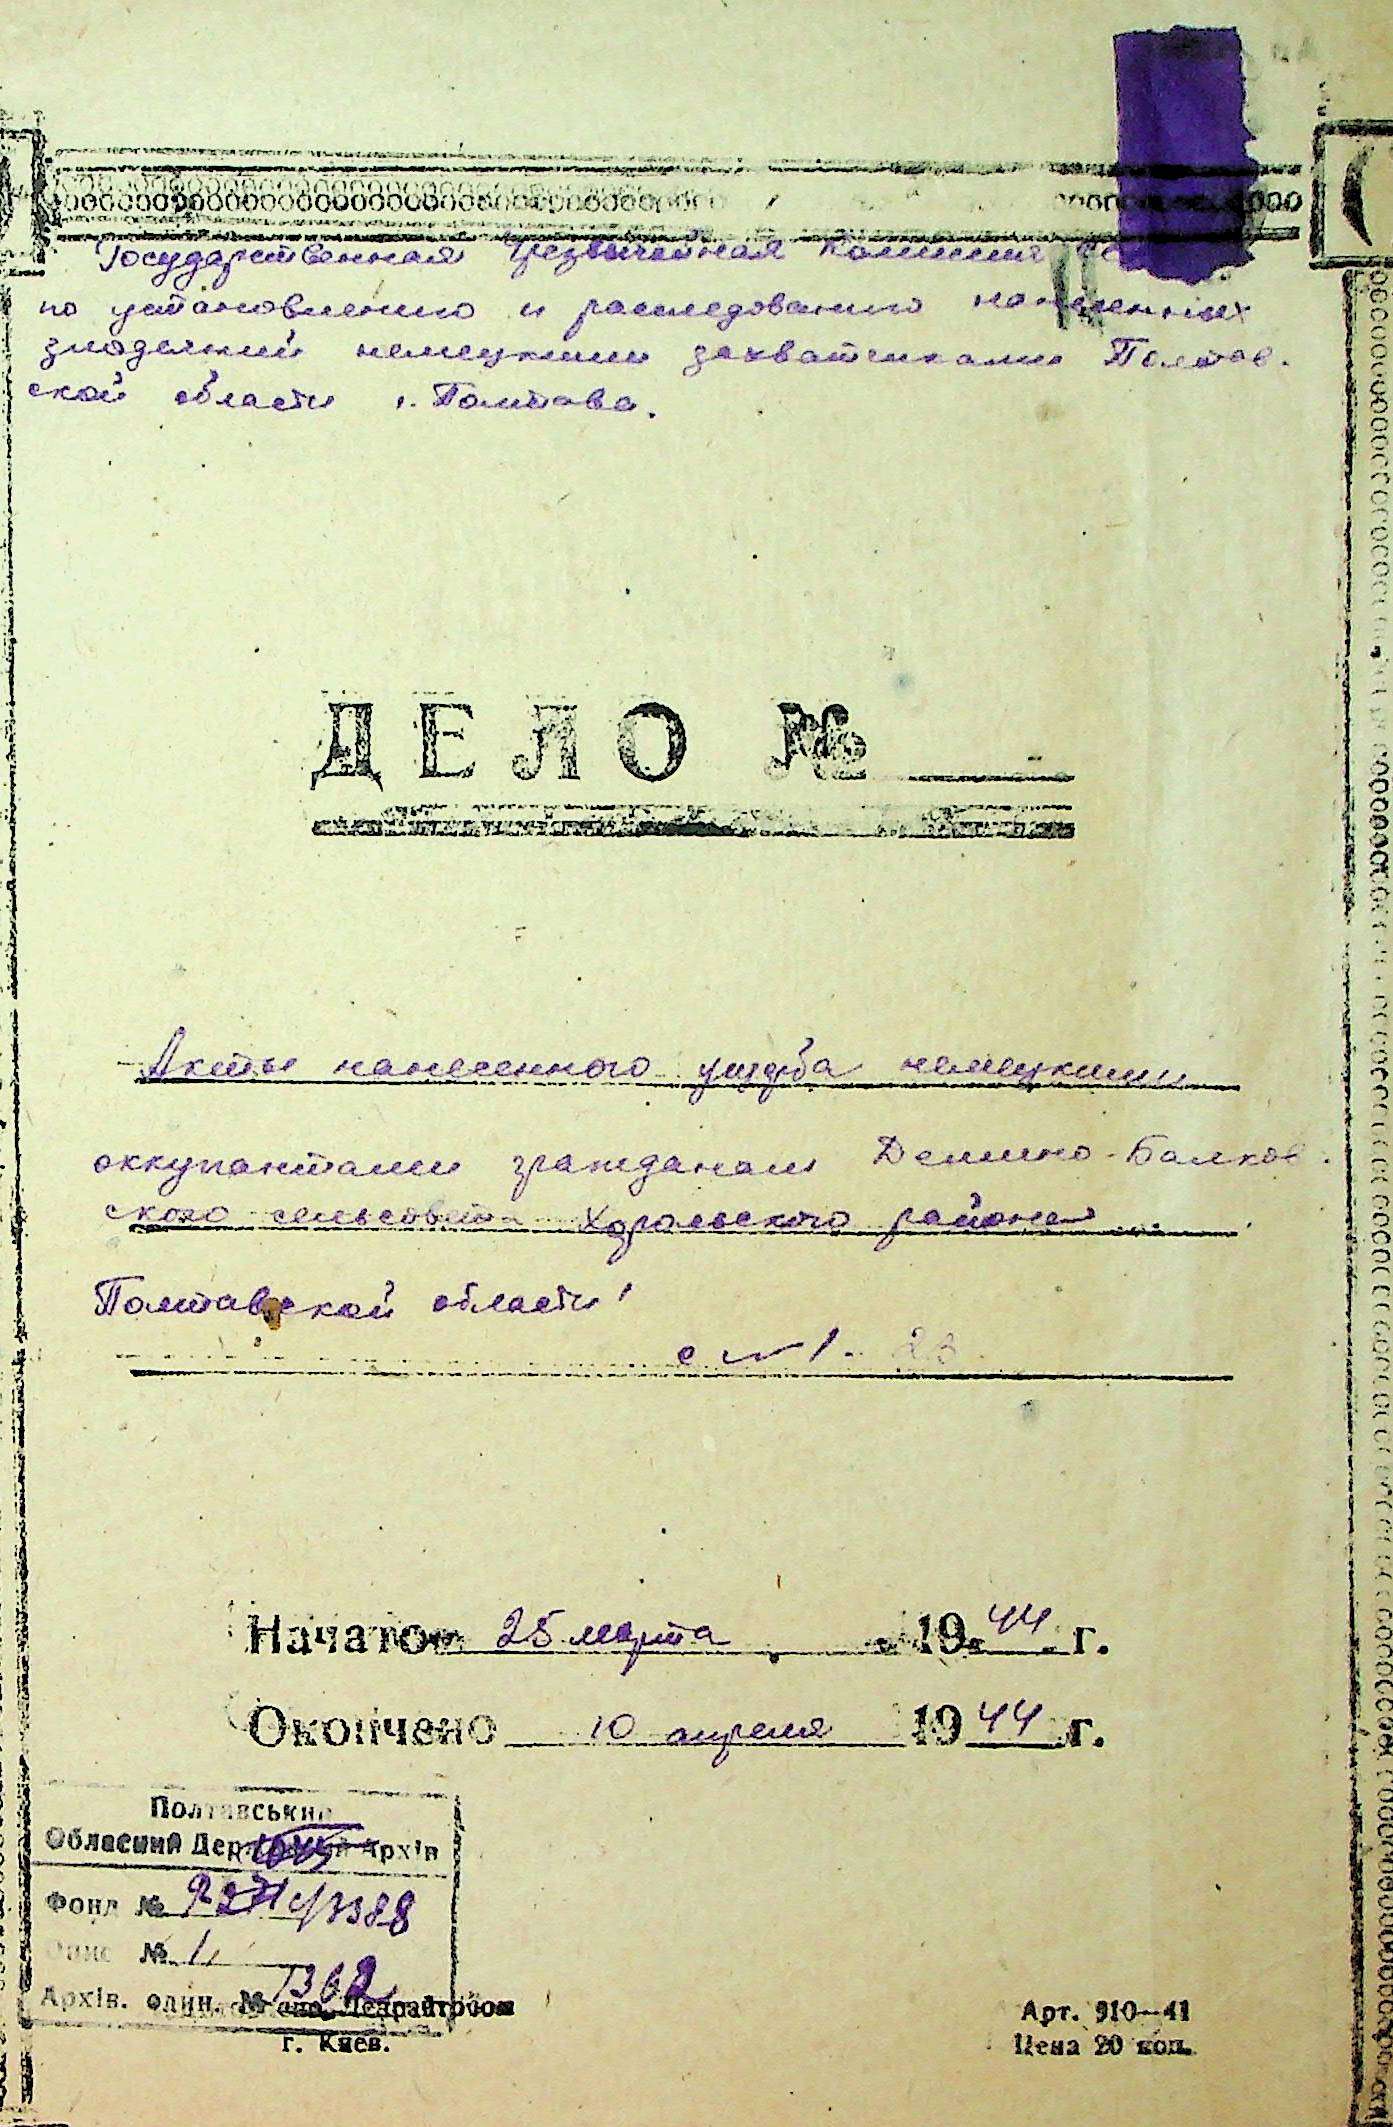 Государственная Чрезвычайная Комиссия
по установлению и расследованию нанесенных
злодеяний немецкими захватчиками Полтав-
ской области г. Полтава.
ДЕЛО №
Акты нанесенного ущерба немецкими
оккупантами гражданам Демино-Балков-
ского сельсовета Хорольского района
Полтавской области
с № 1 - 23
Начато 25 марта 1944 г.
Окончено 10 апреля 1944 г.
Полтавський
Обласний Державний Архів
Фонд № 3388
Опис № 1
Архів. один. № 1362
г. Киев.
Арт. 910—41
Цена 20 коп.